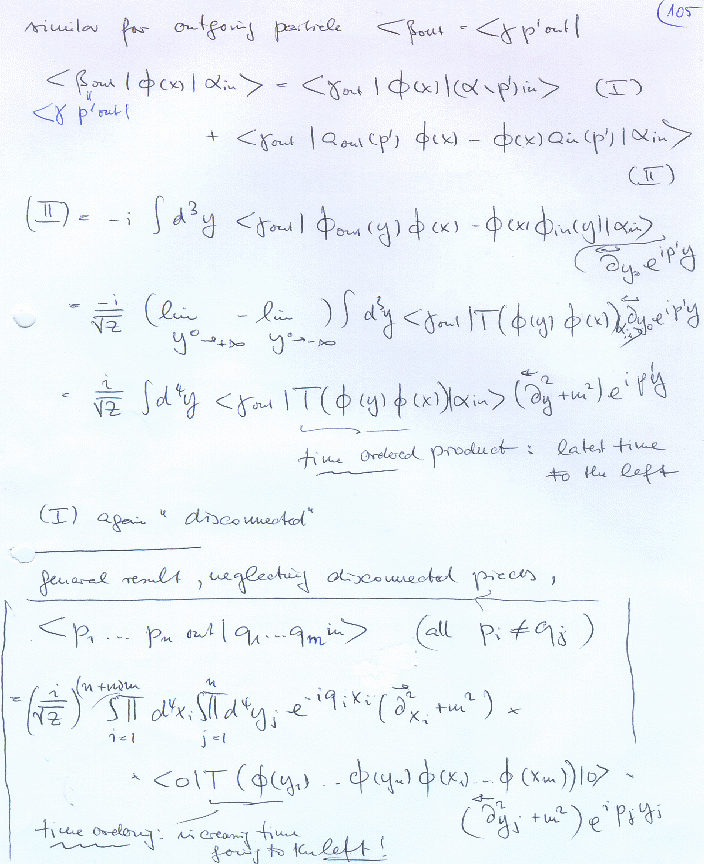 105
similar for outgoing particle <β out = <γ p' out|
<β out | ϕ(x) | α in> = <γ out | ϕ(x) | (α∖p') in> (I)
<γ p' out|
+ <γ out | a out (p') ϕ(x) − ϕ(x) a in (p') | α in>
(II)
(II) = −i ∫ d³y <γ out | ϕ out (y) ϕ(x) − ϕ(x) ϕ in (y) | α in>
∂⃡ y₀ e^{ip'y}
= −i/√Z (lim y⁰→+∞ − lim y⁰→−∞) ∫ d³y <γ out | T(ϕ(y) ϕ(x)) | α in> ∂⃡ y₀ e^{ip'y}
= i/√Z ∫ d⁴y <γ out | T(ϕ(y) ϕ(x)) | α in> (∂⃖²y + m²) e^{ip'y}
time ordered product : latest time
to the left
(I) again "disconnected"
general result, neglecting disconnected pieces,
<p₁ ... pₙ out | q₁ ... qₘ in> (all pᵢ ≠ qⱼ)
= (i/√Z)^{(n+m)} ∫ ∏ i=1 m d⁴xᵢ ∫ ∏ j=1 n d⁴yⱼ e^{−iqᵢxᵢ} (∂⃗²xᵢ + m²) ×
· <0|T (ϕ(y₁) ... ϕ(yₙ) ϕ(x₁) ... ϕ(xₘ))|0> ·
(∂⃖²yⱼ + m²) e^{ipⱼyⱼ}
time ordering : increasing time
going to the left !